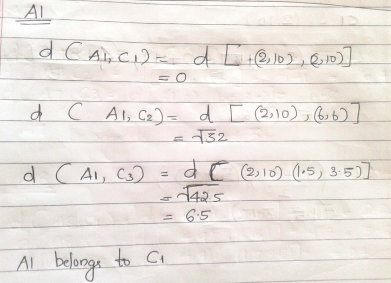 A1
d ( A1, C1) = d [ (2,10) , (2,10)]
= 0
d ( A1, C2) = d [ (2,10) , (6,6) ]
= √32
d ( A1, C3) = d [ (2,10) (1.5, 3.5)]
= √42.5
= 6.5
A1 belongs to C1